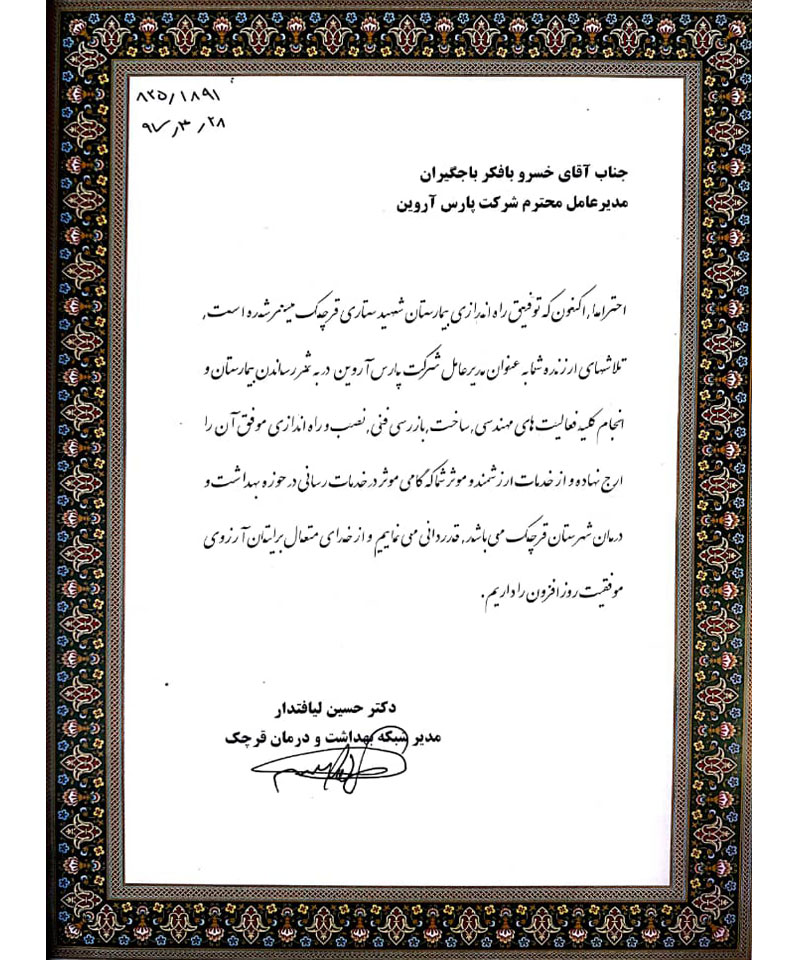 ۸۲۵/۱۸۹۱
۹۷/۳/۲۸
جناب آقای خسرو بافکر باجگیران
مدیرعامل محترم شرکت پارس آروین
احتراما, اکنون که توفیق راه اندازی بیمارستان شهید ستاری قرچک میسر شده است,
تلاشهای ارزنده شما به عنوان مدیرعامل شرکت پارس آروین در به ثمر رساندن بیمارستان و
انجام کلیه فعالیت های مهندسی, ساخت, بازرسی فنی, نصب و راه اندازی موفق آن را
ارج نهاده و از خدمات ارزشمند و موثر شما که گامی موثر در خدمات رسانی در حوزه بهداشت و
درمان شهرستان قرچک می باشد, قدردانی می نماییم و از خدای متعال برایتان آرزوی
موفقیت روزافزون را داریم.
دکتر حسین لیافتدار
مدیر شبکه بهداشت و درمان قرچک